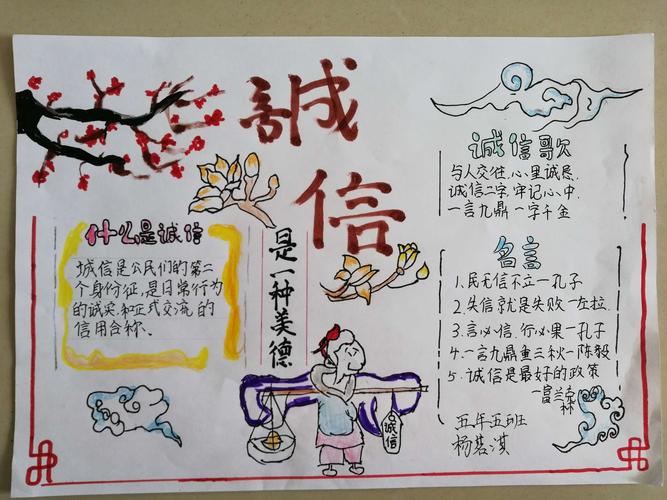 誠信
是一种美德
什么是诚信
诚信是公民们的第二
个身份证,是日常行为
的诚实和正式交流的
信用合称.
诚信歌
与人交往,心里诚恳.
诚信二字,牢记心中.
一言九鼎 一字千金
名言
1.民无信不立—孔子
2.失信就是失败—左拉.
3.言必信,行必果—孔子
4.一言九鼎重三秋—陈毅
5.诚信是最好的政策
—富兰克林
诚信
五年五班
杨茗淇